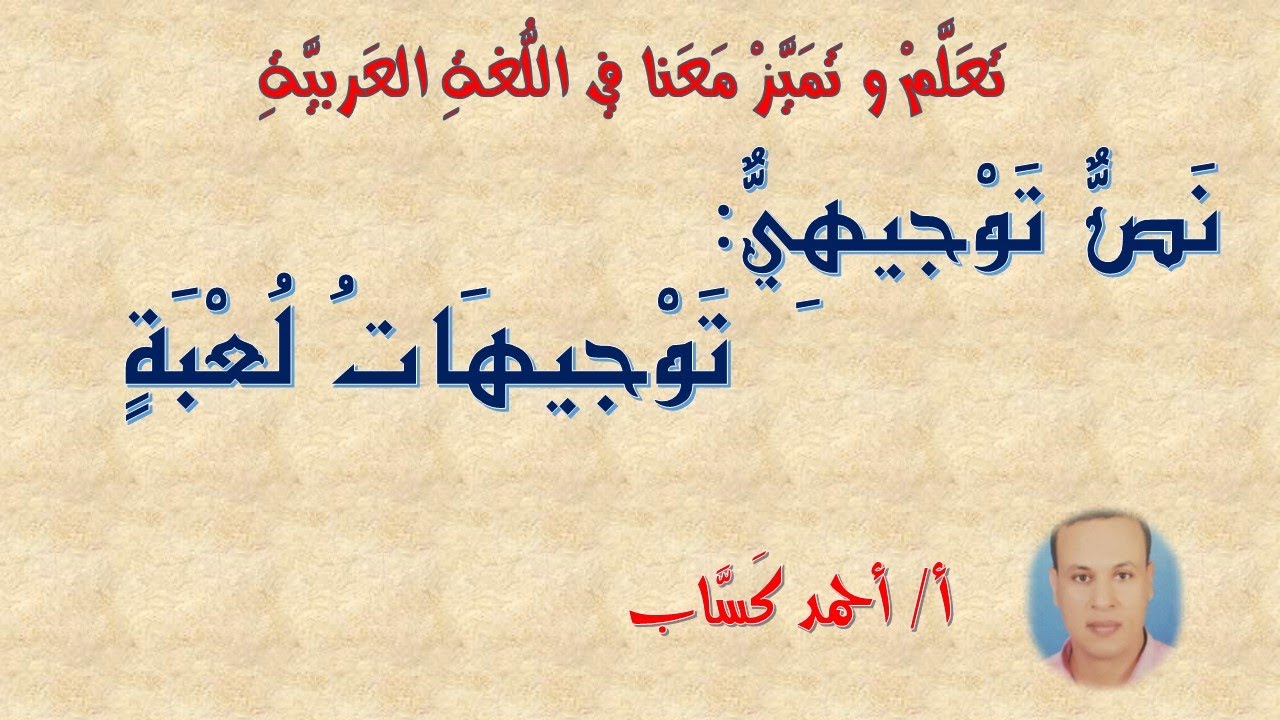 تَعَلَّمْ و تَمَيَّزْ مَعَنا في اللُّغةِ العَربيَّةِ
نَصٌّ تَوْجيهِيٌّ:
تَوْجيهَاتُ لُعْبَةٍ
أ/ أحمد كَسَّاب